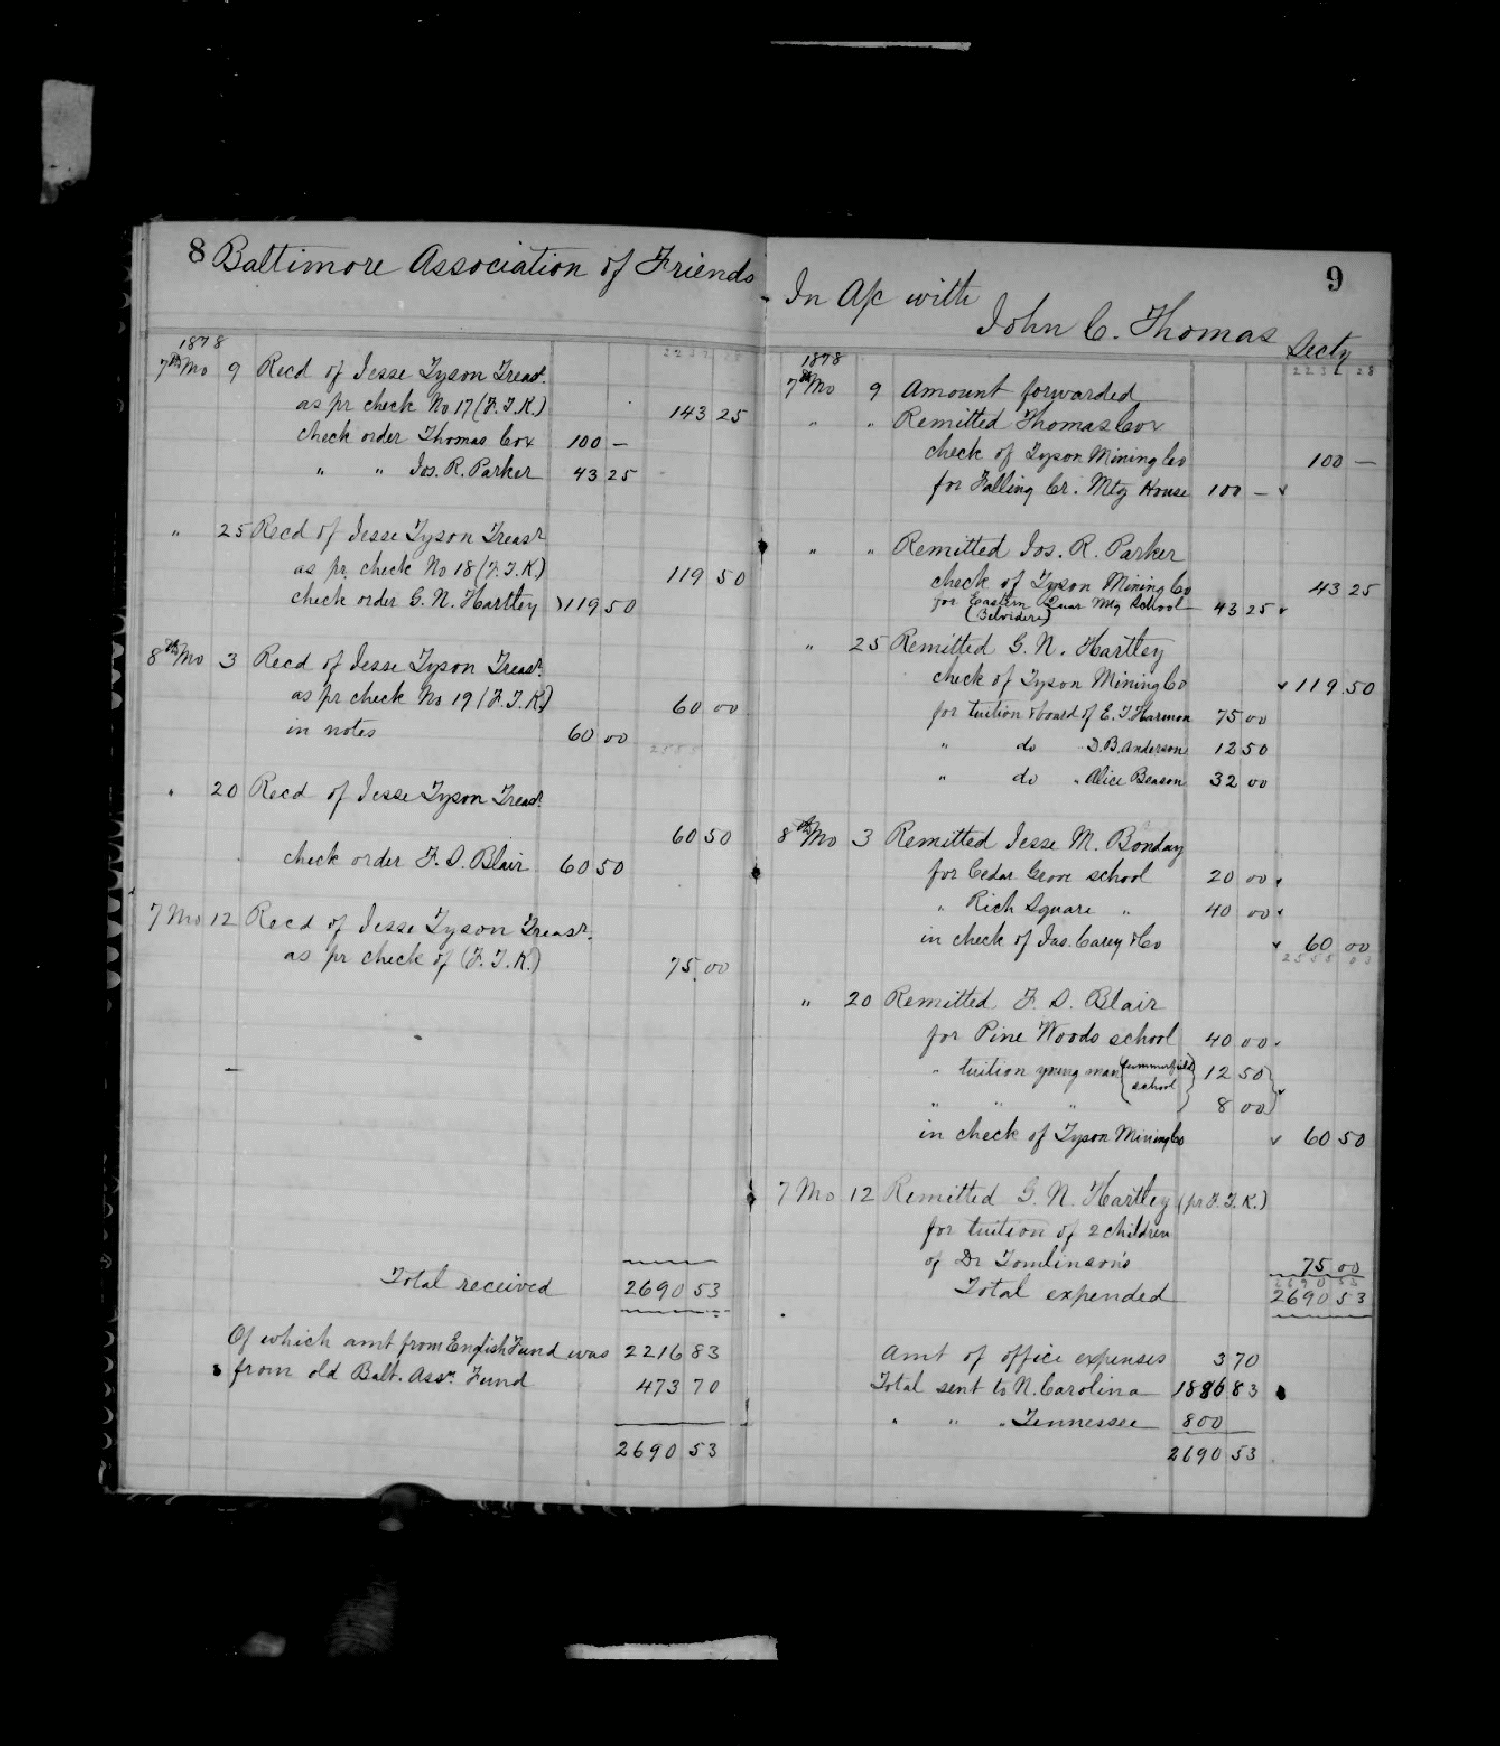 8 Baltimore Association of Friends
1878
7th Mo 9 Recd of Jesse Tyson Treasr.
as pr check No 17 (F. T. K.) 143 25
check order Thomas Cox 100 —
" " Jos. R. Parker 43 25
" 25 Recd of Jesse Tyson Treasr
as pr. check No 18 (F. T. K.) 119 50
check order G. N. Hartley 119 50
8th Mo 3 Recd of Jesse Tyson Treasr.
as pr check No 19 (F. T. K.) 60 00
in notes 60 00
" 20 Recd of Jesse Tyson Treasr.
60 50
check order F. S. Blair 60 50
7 Mo 12 Recd of Jesse Tyson Treasr.
as pr check of (F. T. K.) 75.00
Total received 2690 53
Of which amt from English Fund was 2216 83
" from old Balt. Assn. Fund 473 70
2690 53
9
In A/c with
John C. Thomas Secty
1878 2236 28
7th Mo 9 Amount forwarded
" " Remitted Thomas Cox
check of Tyson Mining Co 100 —
for Falling Cr. Mtg House 100 —
" " Remitted Jos. R. Parker
check of Tyson Mining Co 43 25
for Eastern Quar Mtg School 43 25
(Belvidere)
" 25 Remitted G. N. Hartley
check of Tyson Mining Co 119 50
for tuition & board of E. T. Harmon 75 00
" do " D. B. Anderson 12 50
" do " Alice Benson 32 00
8th Mo 3 Remitted Jesse M. Bonday
for Cedar Grove school 20 00
" Rich Square " 40 00
in check of Jas. Carey & Co 60 00
" 20 Remitted F. S. Blair
for Pine Woods school 40 00
" tuition young man (Summerfield school) 12 50
" " " " 8 00
in check of Tyson Mining Co 60 50
7 Mo 12 Remitted G. N. Hartley (pr F. T. K.)
for tuition of 2 children
of Dr Tomlinson's 75 00
2690 53
Total expended 2690 53
Amt of office expenses 3 70
Total sent to N. Carolina 1886 83
" " " Tennessee 800
2690 53